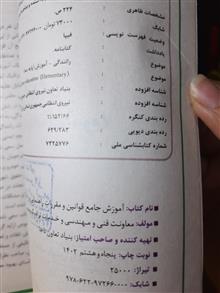 مشخصات ظاهری : ۲۲۴ ص.
شابک : ۷۳۰۰۰ تومان
وضعیت فهرست نویسی : فیپا
یادداشت : کتابنامه.
موضوع : رانندگی - آموزش
موضوع : (Elementary)
شناسه افزوده : بنیاد تعاون
شناسه افزوده : نیروی انتظامی جمهوری
رده بندی کنگره
رده بندی دیویی : ۶۲۹/۲۸۳
شماره کتابشناسی ملی : ۷۳۴۵۷۷۶
نام کتاب: آموزش جامع قوانین و مقررات
مولف: معاونت فنی و مهندسی و خدمات
تهیه کننده و صاحب امتیاز: بنیاد تعاون
نوبت چاپ: پنجاه و هشتم ۱۴۰۲
تیراژ: ۲۵۰۰۰
شابک: ۹۷۸-۶۲۲-۹۷۲۶۶-۰۰۰